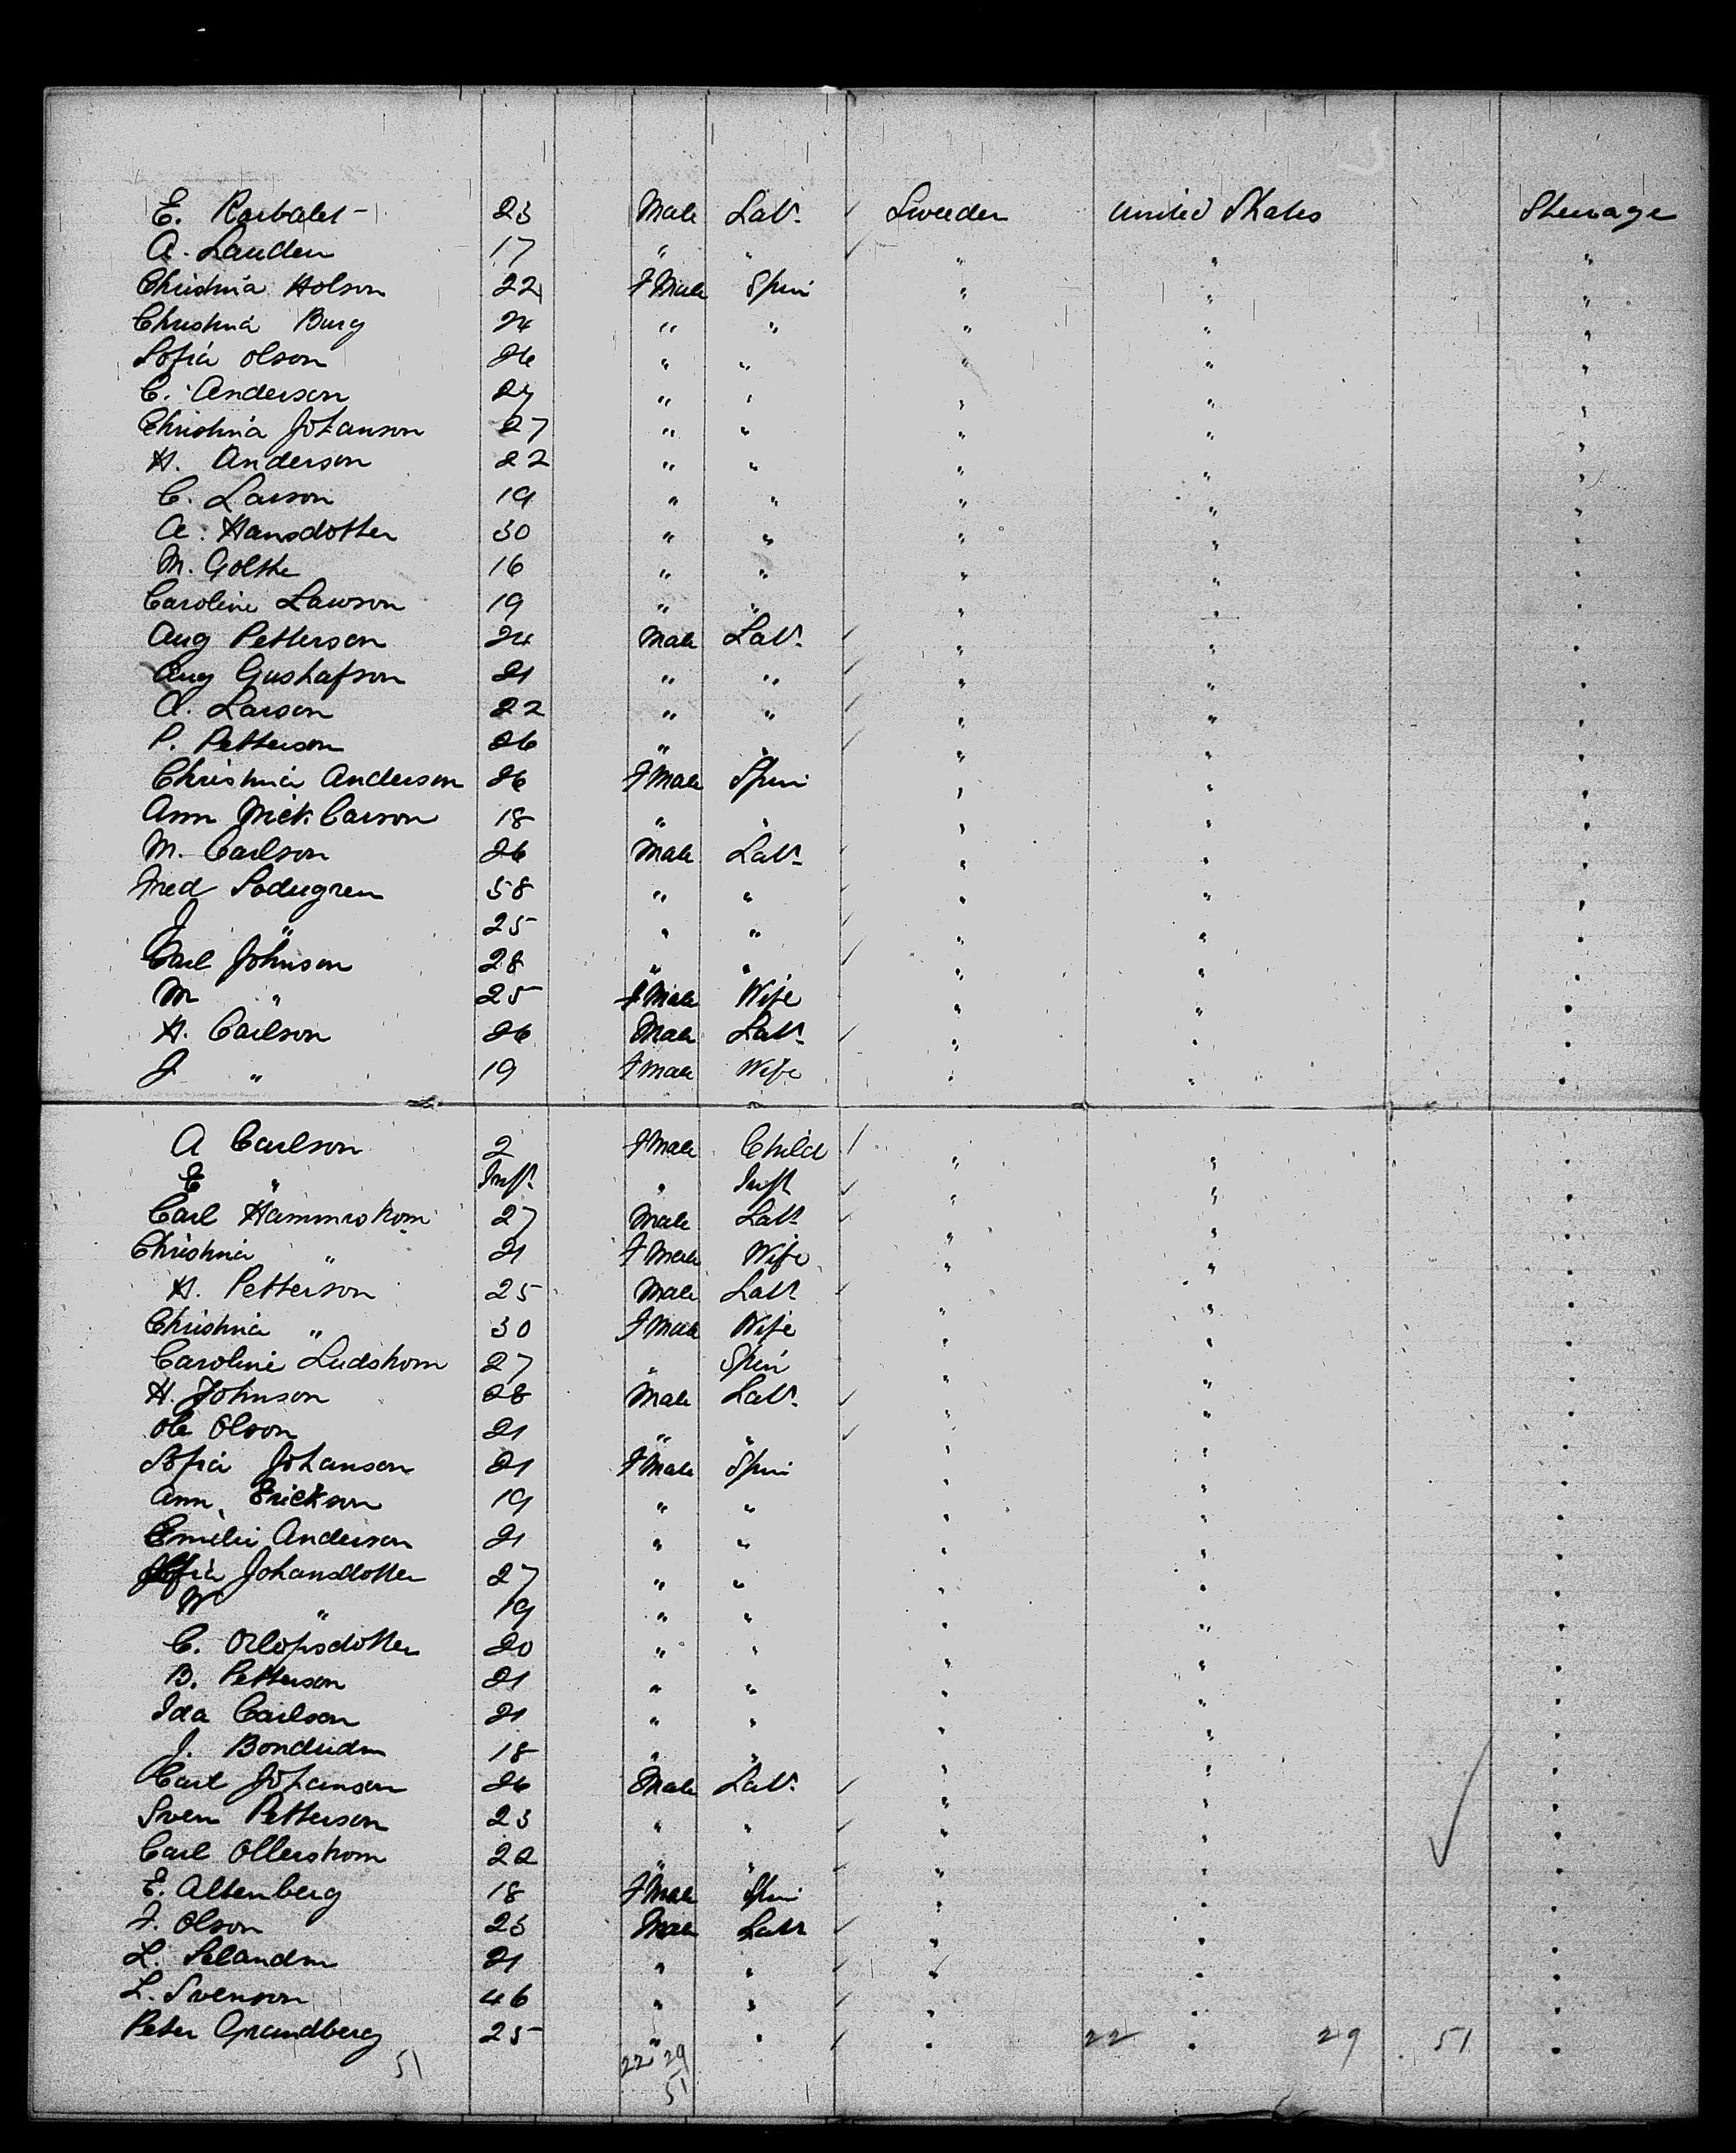 E. Karbalet 23 Male Labr Sweeden United States Steerage
A. Lauden 17 " " " " "
Christina Holson 22 F Male Spin " " "
Christina Burg 24 " " " " "
Sofia Olson 26 " " " " "
C. Anderson 27 " " " " "
Christina Johanson 27 " " " " "
H. Anderson 22 " " " " "
C. Larson 19 " " " " "
A. Hansdotter 30 " " " " "
M. Golthe 16 " " " " "
Caroline Lawson 19 " " " " "
Aug Petterson 24 Male Labr " " "
Aug Gustafson 21 " " " " "
A. Larson 22 " " " " "
P. Petterson 26 " " " " "
Christina Anderson 26 F Male Spin " " "
Ann Carson 18 " " " " "
M. Carlson 26 Male Labr " " "
Fred Sodergren 58 " " " " "
J " 25 " " " " "
Carl Johnson 28 " " " " "
M " 25 F Male Wife " " "
H. Carlson 26 Male Labr " " "
J " 19 F Male Wife " " "
A Carlson 2 F Male Child " " "
E " Inft " Inft " " "
Carl Hammrstrom 27 Male Labr " " "
Christina " 21 F Male Wife " " "
H. Petterson 25 Male Labr " " "
Christina " 30 F Male Wife " " "
Caroline Ludstrom 27 " Spin " " "
H. Johnson 28 Male Labr " " "
Ole Olson 21 " " " " "
Sofia Johanson 21 F Male Spin " " "
Ann Erickson 19 " " " " "
Emelie Anderson 21 " " " " "
Sofia Johansdotter 27 " " " " "
W " 19 " " " " "
C. Olofsdotter 20 " " " " "
B. Petterson 21 " " " " "
Ida Carlson 21 " " " " "
J. 18 " " " " "
Carl Johanson 26 Male Labr " " "
Sven Petterson 23 " " " " "
Carl Ollerstrom 22 " " " " "
E. Altenberg 18 F Male Spin " " "
J. Olson 23 Male Labr " " "
L. Selandn 21 " " " " "
L. Svenson 46 " " " " "
Peter Grandberg 25 " " " 22 " 29 51 "
51 22 29
51